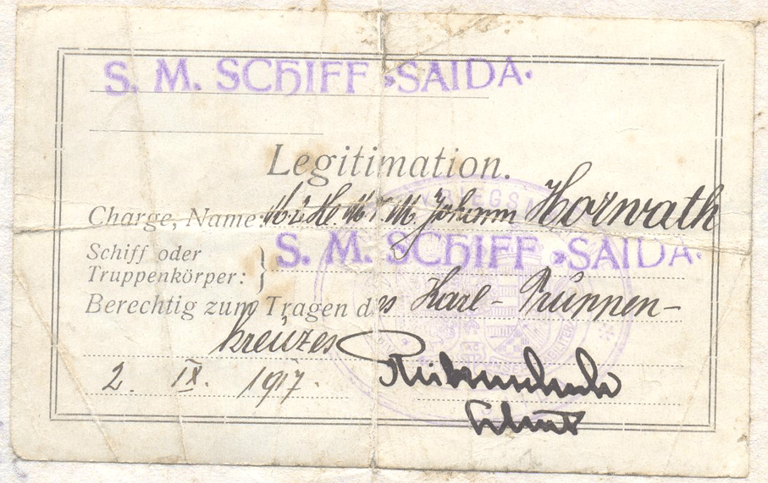 S. M. SCHIFF »SAIDA«
Legitimation.
Charge, Name Johann Horwath
Schiff oder
Truppenkörper: S. M. SCHIFF »SAIDA«
Berechtig zum Tragen des Karl-Truppen-
kreuzes
2. IX. 1917.